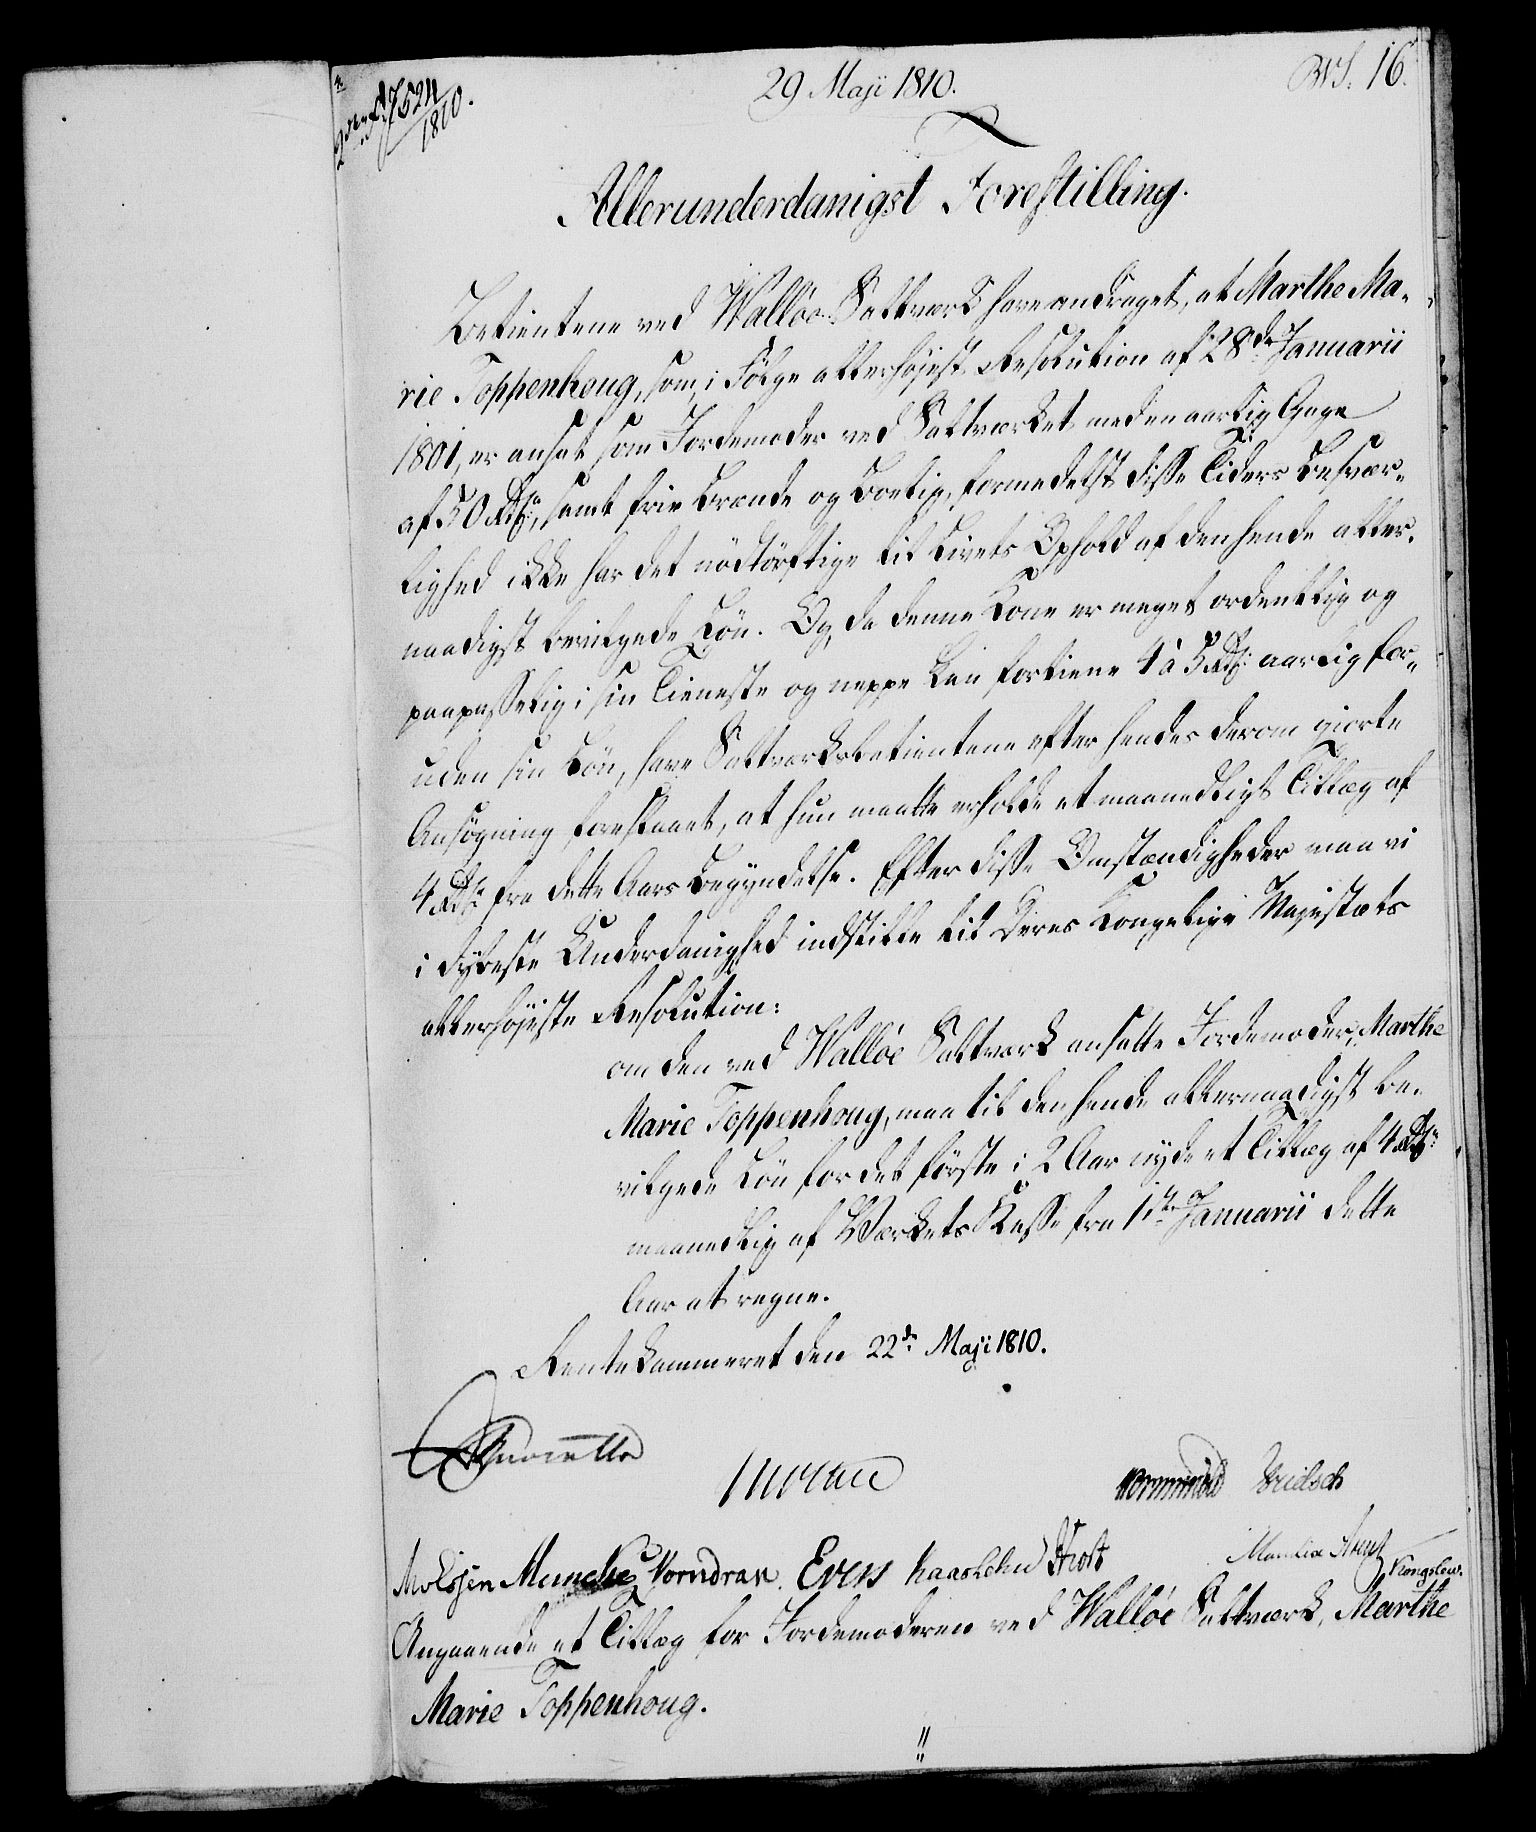 29 Maji 1810.
No. 16.
7524
1810.
Allerunderdanigst Forestilling.
Betientene ved Walløe Saltværk have andraget, at Marthe Ma-
rie Toppenhoug, som, i Følge allerhøjest Resolution af 28de Januarii
1801, er ansat som Jordemoder ved Saltværket med en aarlig Gage
af 50 Rdr, samt frie Brænde og Boelig, formedelst disse Tiders Besvær-
lighed ikke har det nødtørftige til Livets Ophold af den hende aller-
naadigst bevilgede Løn. Og, da denne Kone er meget ordentlig og
paapasselig i sin Tieneste og neppe kan fortiene 4 à 5 Rdr aarlig for-
uden sin Løn, have Saltværksbetientene efter hendes derom giorte
Ansøgning foreslaaet, at hun maatte erholde et maanedligt Tillæg af
4 Rdr fra dette Aars Begyndelse. Efter disse Omstændigheder maa vi
i dybeste Underdanighed indstille til Deres Kongelige Majestæts
allerhøjeste Resolution:
om den ved Walløe Saltværk ansatte Jordemoder, Marthe
Marie Toppenhoug, maa til den hende allernaadigst be-
vilgede Løn for det første i 2 Aar nyde et Tillæg af 4 Rdr
maanedlig af Værkets Kasse fra 1ste Januarii dette
Aar at regne.
Rentekammeret den 22de Maji 1810.
Wormskiold
Knudsen Munch Vorndran. Evers
Kongslew.
Angaaende et Tillæg for Jordemoderen ved Walløe Saltværk, Marthe
Marie Toppenhoug.